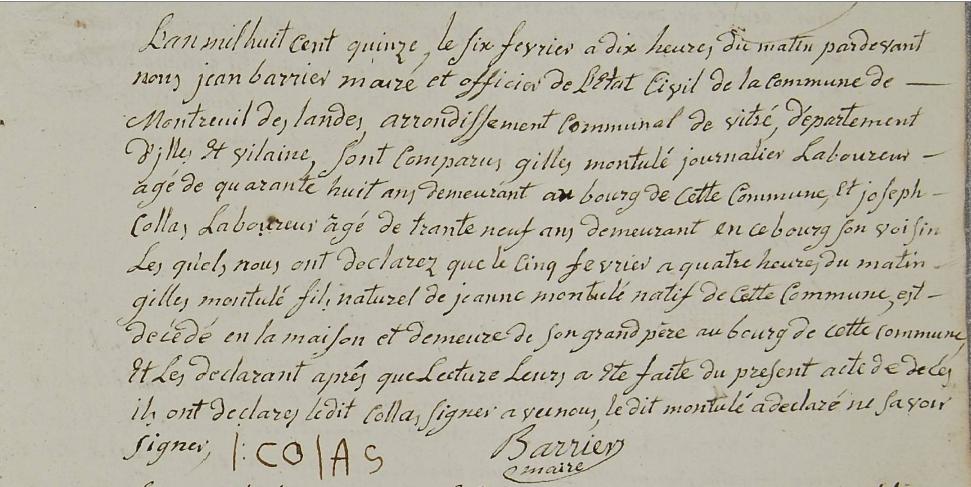 L'an mil huit Cent quinze, le six fevrier a dix heures du matin pardevant
nous jean barrier maire et officier de L'Etat Civil de la Commune de —
Montreuil des landes, arrondissement Communal de vitré, département
D'jlles Et vilaine, Sont Comparus gilles montulé journalier Laboureur —
agé de quarante huit ans demeurant au bourg de Cette Commune, Et joseph -
Collas Laboureur âgé de trante neuf ans demeurant en ce bourg son voisin
Les quels nous ont declarez que le Cinq fevrier a quatre heures du matin -
gilles montulé fils naturel de jeanne montulé natif de Cette Commune, est -
decédé en la maison et demeure de son grand père au bourg de cette commune,
Et Les declarant aprés que Lecture Leurs a Ete faite du present acte de decés
ils ont declares ledit Collas signer avec nous, le dit montulé a declaré ne savoir
signer,
I: COlAS
Barrier
maire